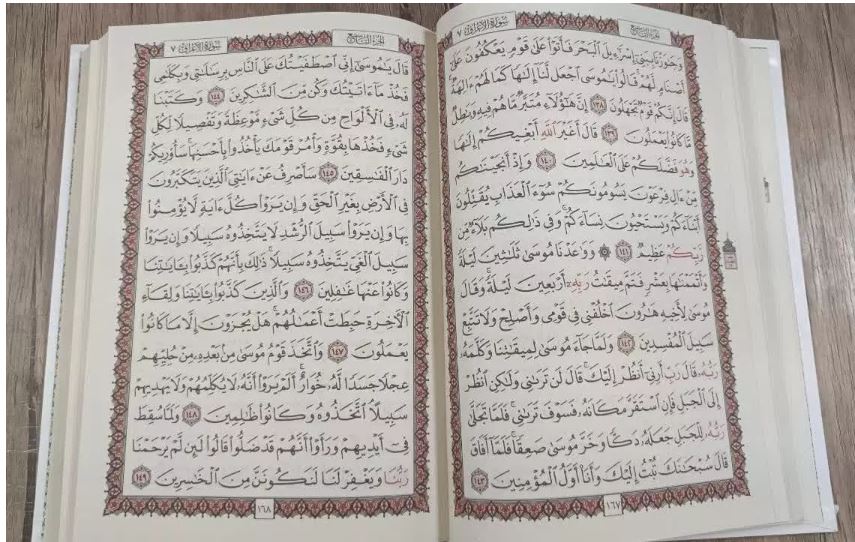 الجزء التاسع
سورة الأعراف ٧
وَجَٰوَزْنَا بِبَنِىٓ إِسْرَٰٓءِيلَ ٱلْبَحْرَ فَأَتَوْا۟ عَلَىٰ قَوْمٍ يَعْكُفُونَ عَلَىٰٓ
أَصْنَامٍ لَّهُمْ ۚ قَالُوا۟ يَٰمُوسَى ٱجْعَل لَّنَآ إِلَٰهًا كَمَا لَهُمْ ءَالِهَةٌ ۚ
قَالَ إِنَّكُمْ قَوْمٌ تَجْهَلُونَ ١٣٨ إِنَّ هَٰٓؤُلَآءِ مُتَبَّرٌ مَّا هُمْ فِيهِ وَبَٰطِلٌ
مَّا كَانُوا۟ يَعْمَلُونَ ١٣٩ قَالَ أَغَيْرَ ٱللَّهِ أَبْغِيكُمْ إِلَٰهًا
وَهُوَ فَضَّلَكُمْ عَلَى ٱلْعَٰلَمِينَ ١٤٠ وَإِذْ أَنجَيْنَٰكُم
مِّنْ ءَالِ فِرْعَوْنَ يَسُومُونَكُمْ سُوٓءَ ٱلْعَذَابِ ۖ يُقَتِّلُونَ
أَبْنَآءَكُمْ وَيَسْتَحْيُونَ نِسَآءَكُمْ ۚ وَفِى ذَٰلِكُم بَلَآءٌ مِّن
رَّبِّكُمْ عَظِيمٌ ١٤١ ۞ وَوَٰعَدْنَا مُوسَىٰ ثَلَٰثِينَ لَيْلَةً
وَأَتْمَمْنَٰهَا بِعَشْرٍ فَتَمَّ مِيقَٰتُ رَبِّهِۦٓ أَرْبَعِينَ لَيْلَةً ۚ وَقَالَ
مُوسَىٰ لِأَخِيهِ هَٰرُونَ ٱخْلُفْنِى فِى قَوْمِى وَأَصْلِحْ وَلَا تَتَّبِعْ
سَبِيلَ ٱلْمُفْسِدِينَ ١٤٢ وَلَمَّا جَآءَ مُوسَىٰ لِمِيقَٰتِنَا وَكَلَّمَهُۥ
رَبُّهُۥ قَالَ رَبِّ أَرِنِىٓ أَنظُرْ إِلَيْكَ ۚ قَالَ لَن تَرَىٰنِى وَلَٰكِنِ ٱنظُرْ
إِلَى ٱلْجَبَلِ فَإِنِ ٱسْتَقَرَّ مَكَانَهُۥ فَسَوْفَ تَرَىٰنِى ۚ فَلَمَّا تَجَلَّىٰ
رَبُّهُۥ لِلْجَبَلِ جَعَلَهُۥ دَكًّا وَخَرَّ مُوسَىٰ صَعِقًا ۚ فَلَمَّآ أَفَاقَ
قَالَ سُبْحَٰنَكَ تُبْتُ إِلَيْكَ وَأَنَا۠ أَوَّلُ ٱلْمُؤْمِنِينَ ١٤٣
١٦٧
الجزء التاسع
سورة الأعراف ٧
قَالَ يَٰمُوسَىٰٓ إِنِّى ٱصْطَفَيْتُكَ عَلَى ٱلنَّاسِ بِرِسَٰلَٰتِى وَبِكَلَٰمِى
فَخُذْ مَآ ءَاتَيْتُكَ وَكُن مِّنَ ٱلشَّٰكِرِينَ ١٤٤ وَكَتَبْنَا
لَهُۥ فِى ٱلْأَلْوَاحِ مِن كُلِّ شَىْءٍ مَّوْعِظَةً وَتَفْصِيلًا لِّكُلِّ
شَىْءٍ فَخُذْهَا بِقُوَّةٍ وَأْمُرْ قَوْمَكَ يَأْخُذُوا۟ بِأَحْسَنِهَا ۚ سَأُو۟رِيكُمْ
دَارَ ٱلْفَٰسِقِينَ ١٤٥ سَأَصْرِفُ عَنْ ءَايَٰتِىَ ٱلَّذِينَ يَتَكَبَّرُونَ
فِى ٱلْأَرْضِ بِغَيْرِ ٱلْحَقِّ وَإِن يَرَوْا۟ كُلَّ ءَايَةٍ لَّا يُؤْمِنُوا۟
بِهَا وَإِن يَرَوْا۟ سَبِيلَ ٱلرُّشْدِ لَا يَتَّخِذُوهُ سَبِيلًا وَإِن يَرَوْا۟
سَبِيلَ ٱلْغَىِّ يَتَّخِذُوهُ سَبِيلًا ۚ ذَٰلِكَ بِأَنَّهُمْ كَذَّبُوا۟ بِـَٔايَٰتِنَا
وَكَانُوا۟ عَنْهَا غَٰفِلِينَ ١٤٦ وَٱلَّذِينَ كَذَّبُوا۟ بِـَٔايَٰتِنَا وَلِقَآءِ
ٱلْءَاخِرَةِ حَبِطَتْ أَعْمَٰلُهُمْ ۚ هَلْ يُجْزَوْنَ إِلَّا مَا كَانُوا۟
يَعْمَلُونَ ١٤٧ وَٱتَّخَذَ قَوْمُ مُوسَىٰ مِنۢ بَعْدِهِۦ مِنْ حُلِيِّهِمْ
عِجْلًا جَسَدًا لَّهُۥ خُوَارٌ ۚ أَلَمْ يَرَوْا۟ أَنَّهُۥ لَا يُكَلِّمُهُمْ وَلَا يَهْدِيهِمْ
سَبِيلًا ۘ ٱتَّخَذُوهُ وَكَانُوا۟ ظَٰلِمِينَ ١٤٨ وَلَمَّا سُقِطَ
فِىٓ أَيْدِيهِمْ وَرَأَوْا۟ أَنَّهُمْ قَدْ ضَلُّوا۟ قَالُوا۟ لَئِن لَّمْ يَرْحَمْنَا
رَبُّنَا وَيَغْفِرْ لَنَا لَنَكُونَنَّ مِنَ ٱلْخَٰسِرِينَ ١٤٩
١٦٨